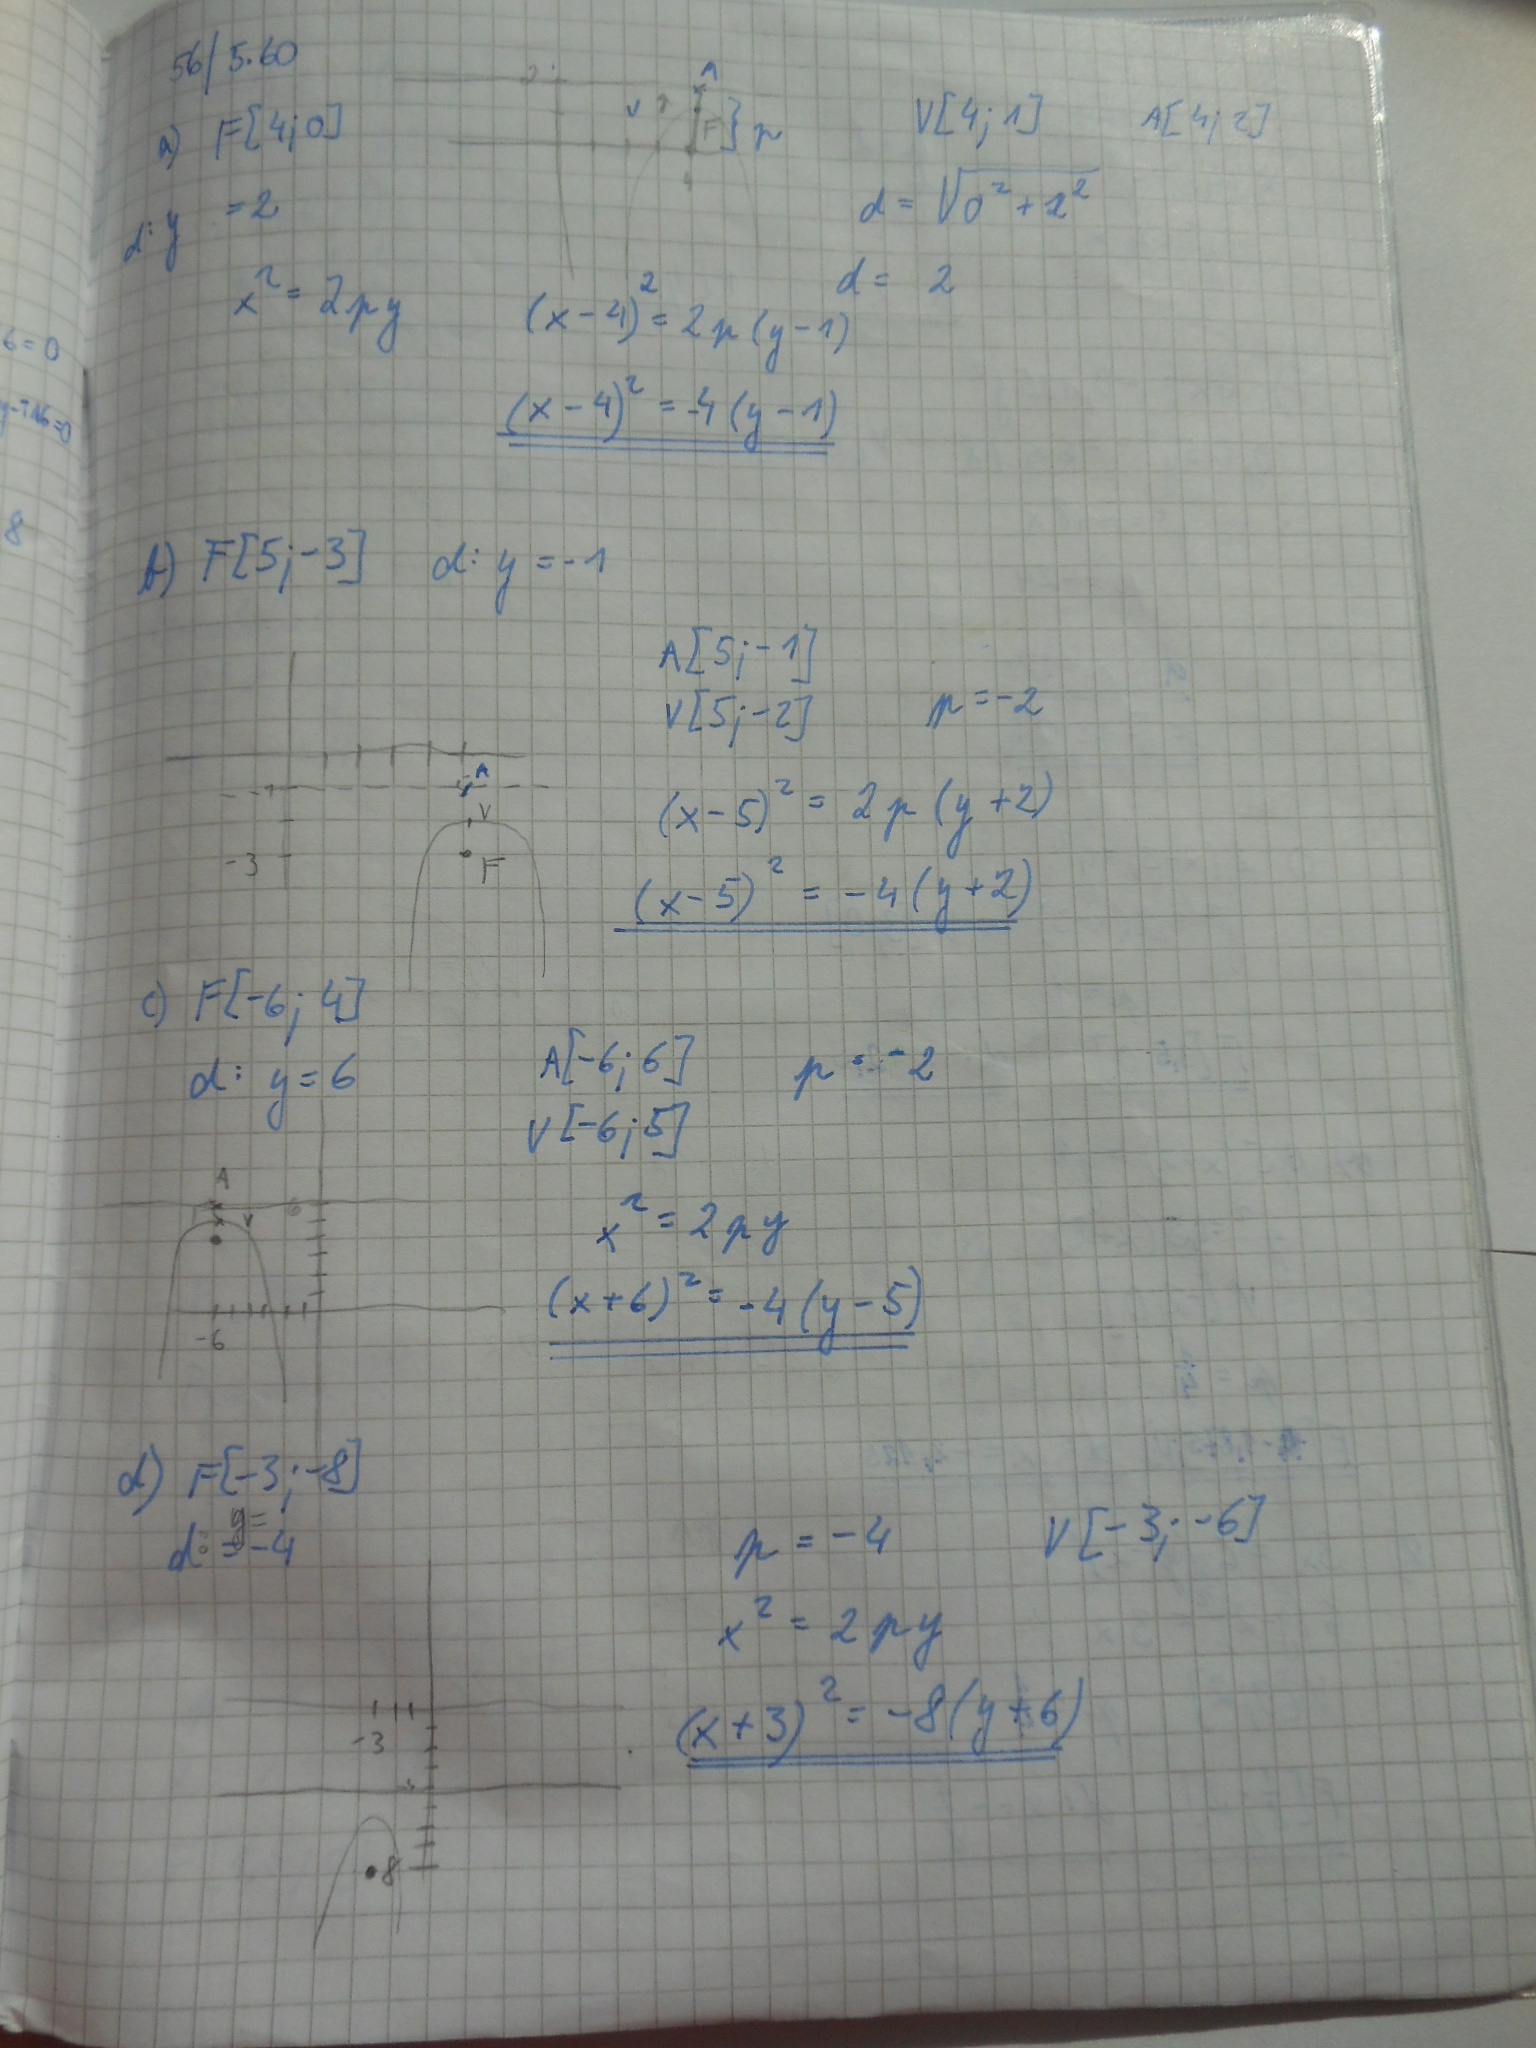 56/5.60
a) F[4;0]
d: y = 2
2
A
V
F
p
4
V[4;1] A[4;2]
d = √0² + 2²
d = 2
x² = 2py
(x-4)² = 2p(y-1)
(x-4)² = -4(y-1)
6=0
8
b) F[5;-3] d: y = -1
A[5;-1]
V[5;-2] p = -2
-1
A
V
-3
F
(x-5)² = 2p(y+2)
(x-5)² = -4(y+2)
c) F[-6;4]
d: y = 6
A[-6;6] p = -2
V[-6;5]
A
V
6
-6
x² = 2py
(x+6)² = -4(y-5)
d) F[-3;-8]
d: y = -4
p = -4 V[-3;-6]
x² = 2py
(x+3)² = -8(y+6)
-3
8